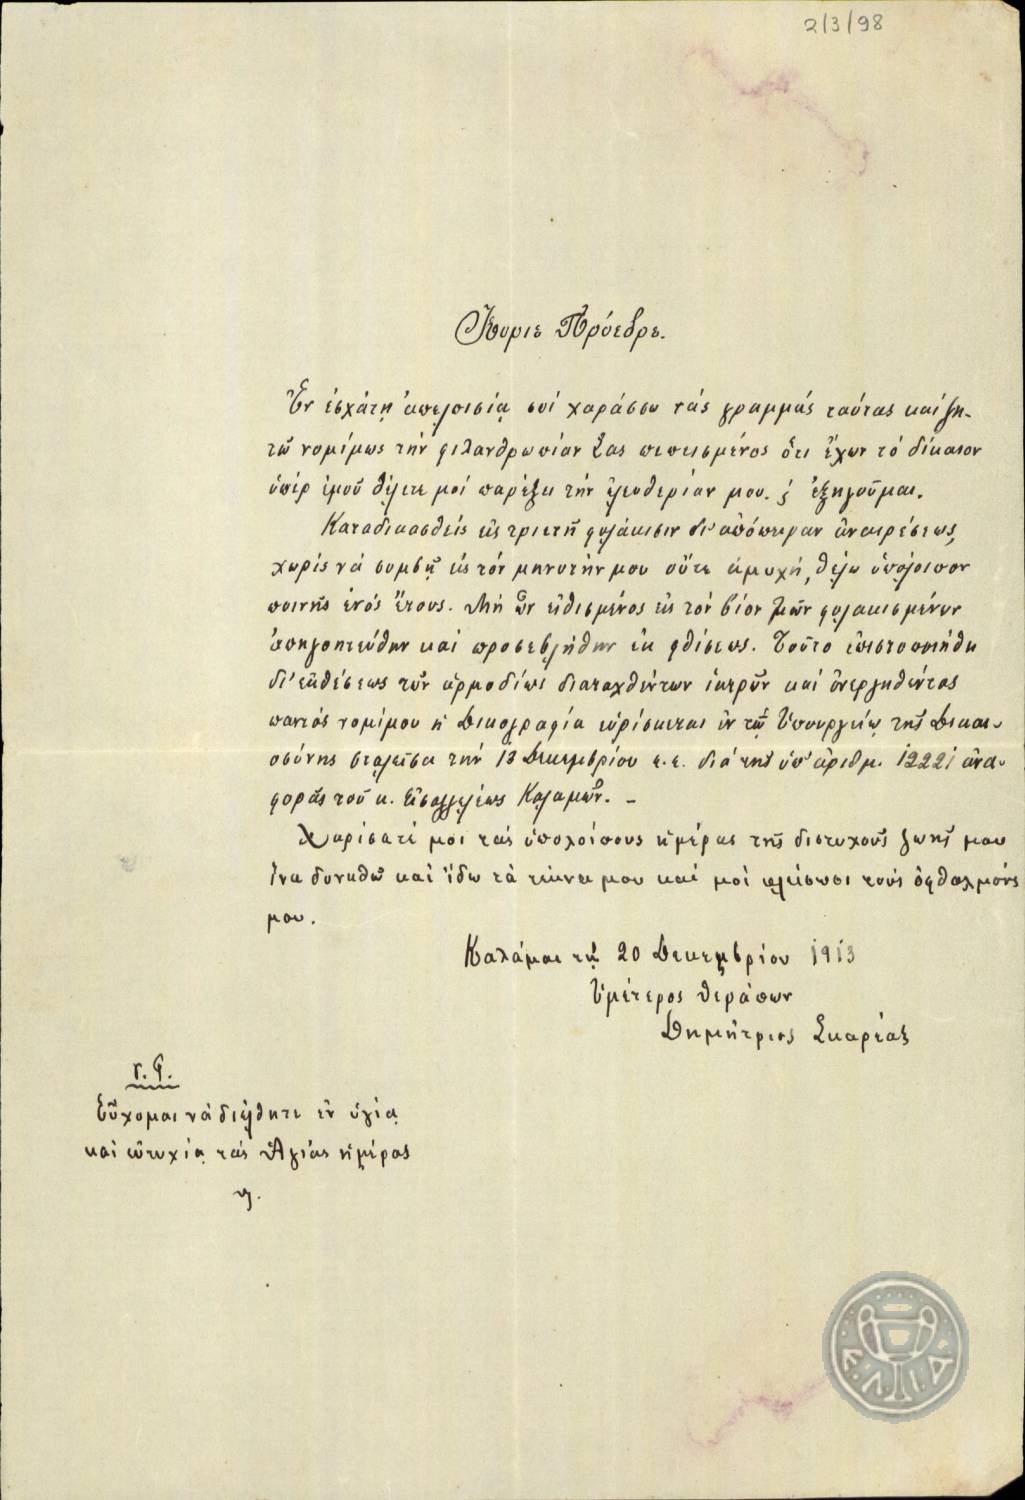 2/3/98
Κύριε Πρόεδρε.
Ἐν ἐσχάτῃ ἀπελπισίᾳ σοί χαράσσω τάς γραμμάς ταύτας καί ζη-
τῶ νομίμως τήν φιλανθρωπίαν Σας πεπεισμένος ὅτι ἔχων τό δίκαιον
ὑπέρ ἐμοῦ θέλετε μοί παρέξει τήν ἐλευθερίαν μου. ἐξηγοῦμαι.
Καταδικασθείς εἰς τριετῆ φυλάκισιν δι' ἀπόπειραν ἀναιρέσεως,
χωρίς νά συμβῇ εἰς τόν μηνυτήν μου οὔτε ἀμυχή, θέλω ὑπόλοιπον
ποινῆς ἑνός ἔτους. Μή ὤν εἰθισμένος εἰς τόν βίον τῶν φυλακισμένων
ἀπηλπητεύθην καί προσεβλήθην ἐκ φθίσεως. Τοῦτο ἐπιστοποιήθη
δι' ἐκθέσεως τῶν ἁρμοδίως διαταχθέντων ἰατρῶν καί ἐνεργηθέντος
παντός νομίμου ἡ δικογραφία εὑρίσκεται ἐν τῷ Ὑπουργείῳ τῆς Δικαι-
οσύνης σταλεῖσα τήν 13 Δεκεμβρίου ἐ.ἐ. διά τῆς ὑπ' ἀριθμ. 12221 ἀνα-
φορᾶς τοῦ κ. Εἰσαγγελέως Καλαμῶν. –
Χαρίσατέ μοι τάς ὑπολοίπους ἡμέρας τῆς δυστυχοῦς ζωῆς μου
ἵνα δυνηθῶ καί ἴδω τά τέκνα μου καί μοί κλείσωσι τούς ὀφθαλμούς
μου.
Καλάμαι τῇ 20 Δεκεμβρίου 1913
Ὑμέτερος θεράπων
Δημήτριος Σκαρέας
Εὔχομαι νά διέλθητε ἐν ὑγίᾳ
καί εὐτυχίᾳ τάς Ἁγίας ἡμέρας
Ε.Λ.Ι.Α